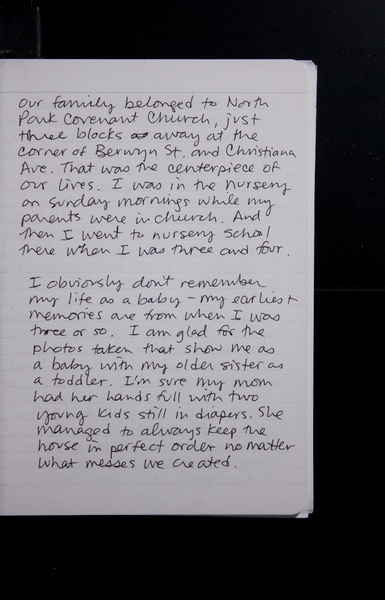 Our family belonged to North
Park Covenant Church, just
three blocks away at the
corner of Berwyn St. and Christiana
Ave. That was the centerpiece of
our lives. I was in the nursery
on Sunday mornings while my
parents were in church. And
then I went to nursery school
there when I was three and four.

I obviously don't remember
my life as a baby – my earliest
memories are from when I was
three or so. I am glad for the
photos taken that show me as
a baby with my older sister as
a toddler. I'm sure my mom
had her hands full with two
young kids still in diapers. She
managed to always keep the
house in perfect order no matter
what messes we created.